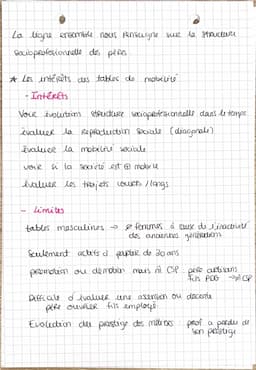 La ligne ensemble nous renseigne sur la structure
socioprofessionnelle des pères
* Les intérêts des tables de mobilité
- Intérêts
Voir évolutions structure socioprofessionnelle dans le temps
évaluer la reproduction sociale (diagonale)
évaluer la mobilité sociale
voir si la société est ⊕ mobile
évaluer les trajets courts / longs
- Limites
tables masculines → ≠ femmes à cause de l'inactivité
des anciennes générations
Seulement actifs à partir de 30 ans
promotion ou démotion mais = CSP père artisans
fils PDG → = CSP
Difficile d'évaluer une ascension ou descente
père ouvrier fils employé
Evolution du prestige des métiers prof a perdu de
son prestige